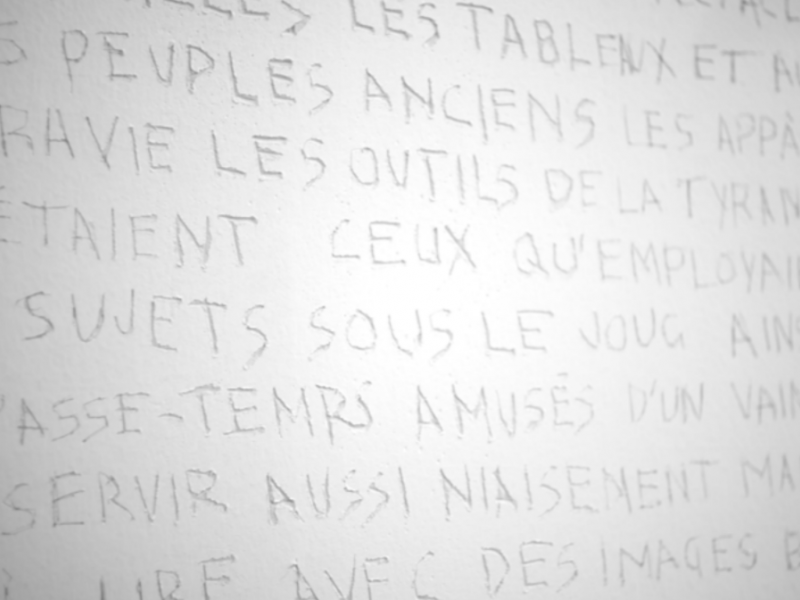 LES TABLEAUX ET
PEUPLES ANCIENS LES APPÂ
RAVIE LES OUTILS DE LA TYRAN
ÉTAIENT CEUX QU'EMPLOYAI
SUJETS SOUS LE JOUG AINS
ASSE-TEMPS AMUSÉS D'UN VAIN
SERVIR AUSSI NIAISEMENT MA
LIRE AVEC DES IMAGES